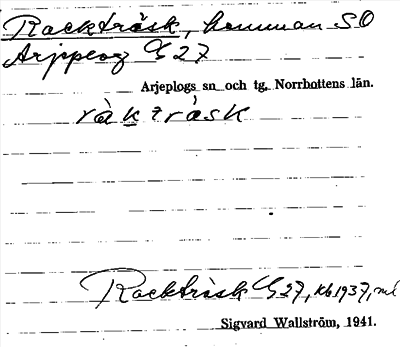 Rackträsk, hemman SO
Arjeplog G 27
Arjeplogs sn och tg, Norrbottens län.
ràk trásk
Rackträsk G 27, Kb 1937, nl
Sigvard Wallström, 1941.